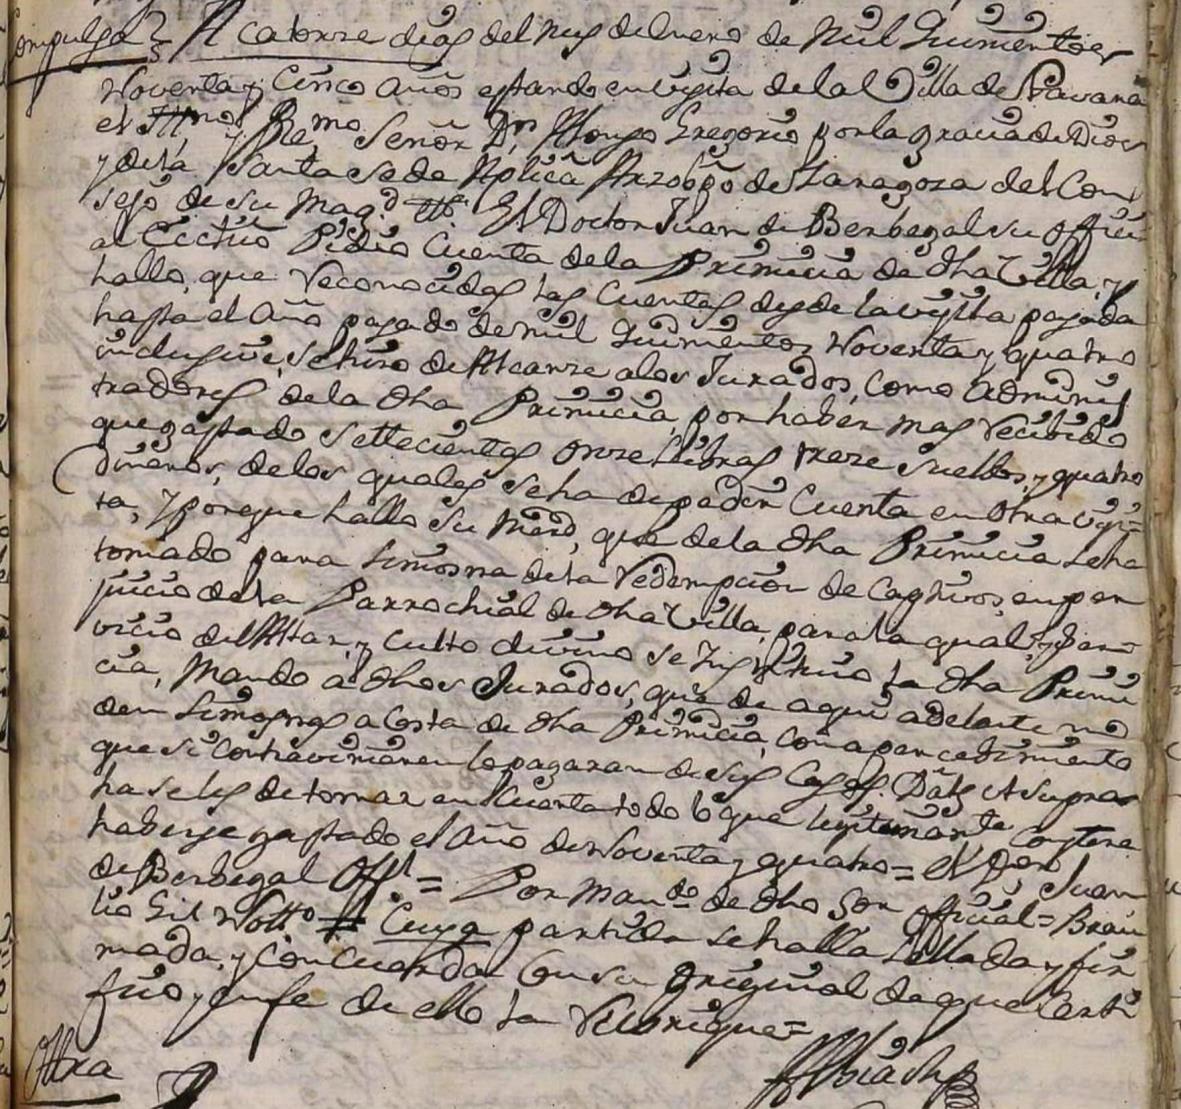 Compulsa A catorze dias del mes de Enero de Mil Quinientos
Noventa y Cinco años estando en visita de la Villa de Pavana
el Ill.mo y R.mo Señor D.n Alonso Gregorio por la gracia de Dios
y de la Santa Sede Aplica Arzobpo de Zaragoza del Con
sejo de su Mag.d &. El Doctor Juan de Berbegal su offici
al Ecctico Pidio Cuenta de la Primicia de dha Villa, y
hallo, que Reconocidas las Cuentas desde la visita pasada
hasta el Año pasado de mil Quinientos Noventa y quatro
inclusive, se hizo de Alcanze a los Jurados, como Adminis
tradores de la dha Primicia, por haber mas Recibido
que gastado settecientas onze Libras treze sueldos, y quatro
dineros, de los quales se ha de pedir Cuenta en otra visi=
ta, Y porque hallo su Merd, que de la dha Primicia se ha
tomado para limosna de la Redempcion de Captivos, en per
juicio de la Parrochial de dha Villa, para la qual, y ser=
vicio del Altar, y culto divino se Instituio la dha Primi
cia, Mando a dhos Jurados, que de aqui adelante no
den limosnas a Costa de dha Primicia, con apercebimiento
que si contravinieren lo pagaran de sus Casas. Datt. ut supra
ha seles de tomar en Cuenta todo lo que legitimamte constare
haberse gastado el Año de Noventa y quatro = el Dor Juan
de Berbegal Off.l = Por Man.do de dho Sor official = Brau
lio Gil Nott.o # Cuya partida se halla sellada y fir
mada, y Concuerda Con su Original de que Certi
fico, y en fe de ello la Rubrique=
Ottra